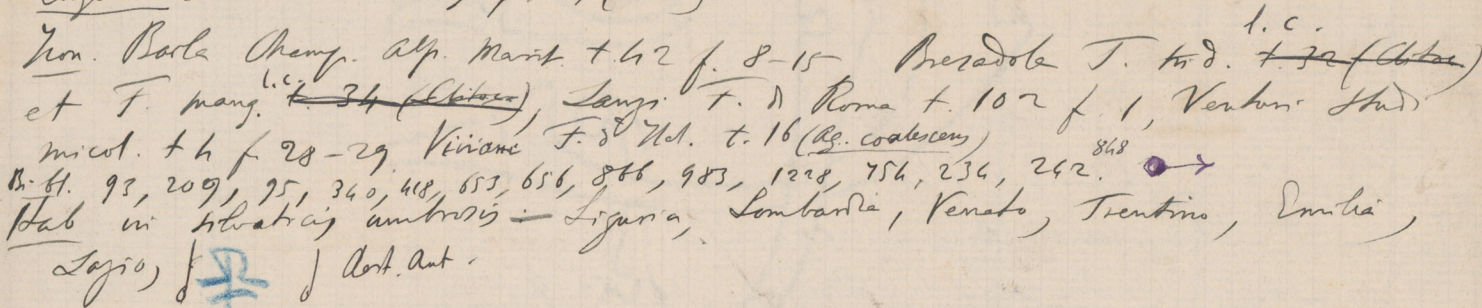 l. c.
Icon. Barla Champ. Alp. Marit. t. 42 f. 8-15 Bresadola F. trid. t. 32 (Clitoc.)
et F. mang. l.c. t. 34 (Clitoc.), Lanzi F. di Roma t. 102 f. 1, Venturi Studi
micol. t. 4 f. 28-29 Viviani F. d'Ital. t. 16 (Ag. coalescens)
Bibl. 93, 209, 95, 340, 418, 653, 656, 866, 983, 1228, 754, 234, 242. 848
Hab in silvaticis umbrosis - Liguria, Lombardia, Veneto, Trentino, Emilia,
Lazio, Aest. Aut.